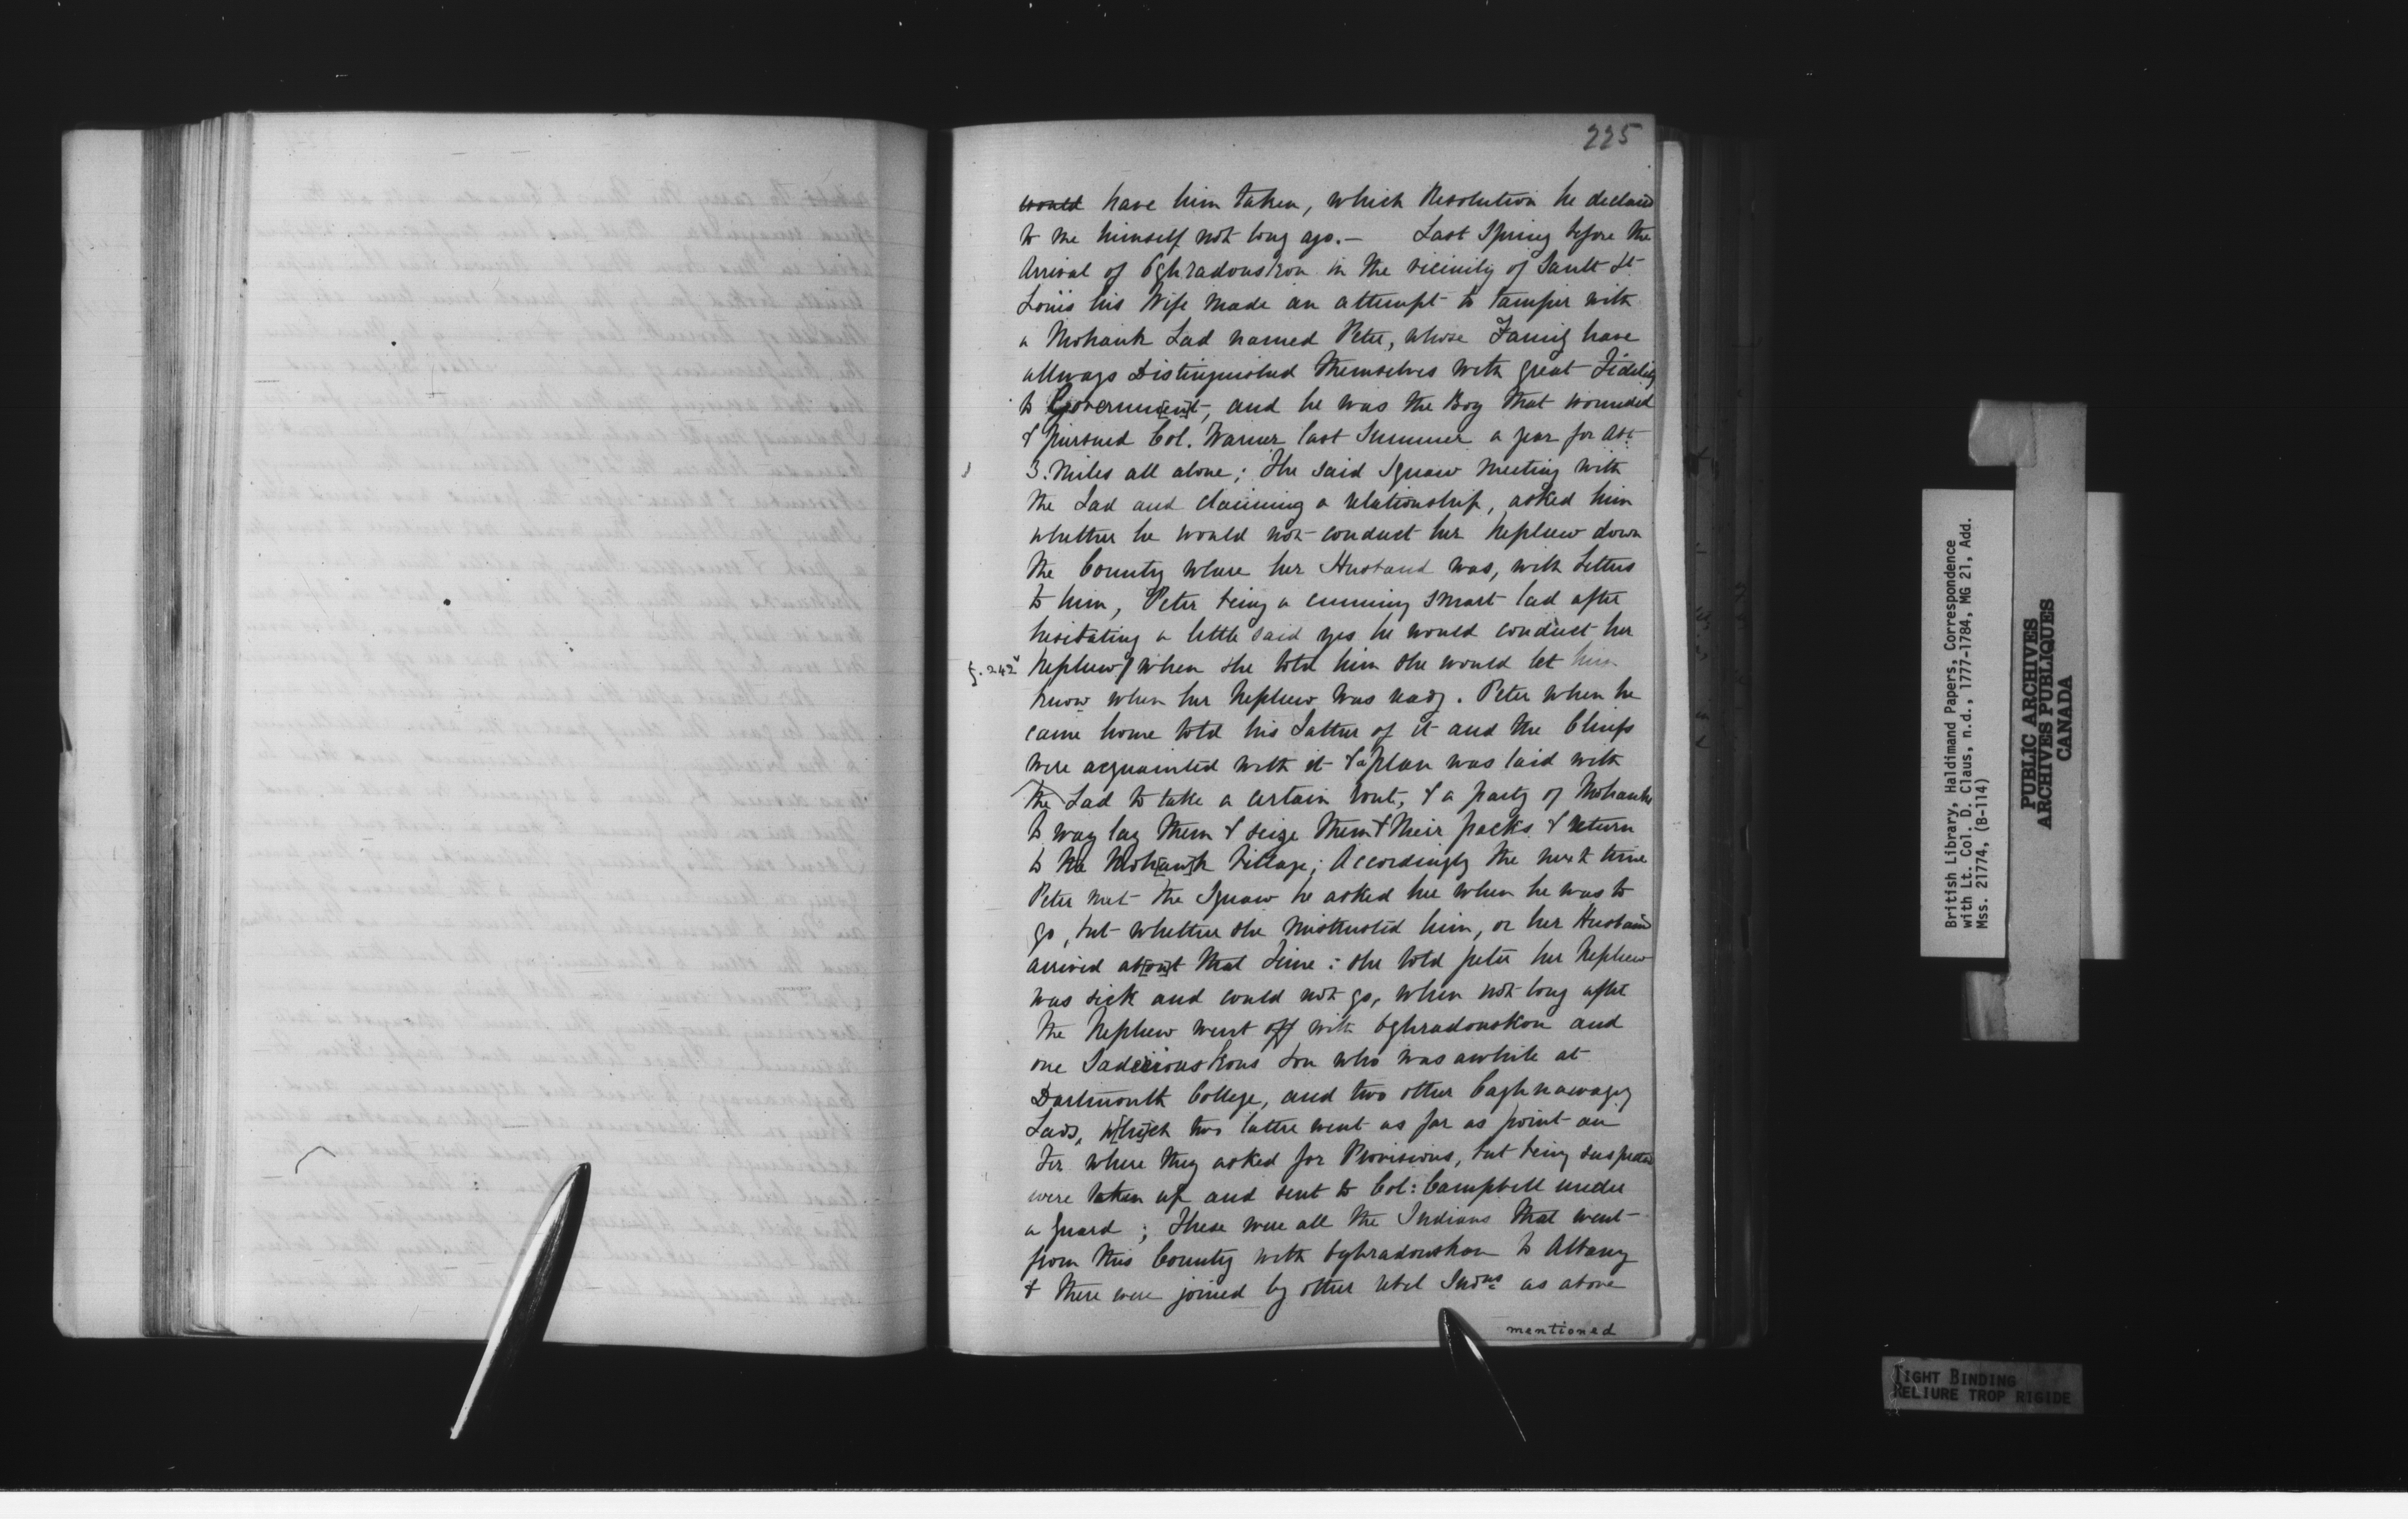 225
would have him taken, which Resolution he declared
to me himself not long ago. — Last Spring before the
Arrival of Oghradouskon in the vicinity of Sault St
Louis his Wife made an attempt to tamper with
a Mohawk Lad named Peter, whose Family have
allways Distinguished themselves with great Fidelity
to Governm[en]t, and he was the Boy that wounded
& pursued Col. Warner last Summer a year for abt
3. Miles all alone; The said Squaw meeting with
the Lad and claiming a relationship, asked him
whether he would not conduct her Nephew down
the Country where her Husband was, with Letters
to him, Peter being a cunning smart lad after
hesitating a little said yes he would conduct her
f. 242v Nephew/ when she told him she would let him
know when her Nephew was ready. Peter when he
came home told his Father of it and the Chiefs
were acquainted with it & a plan was laid with
the Lad to take a certain rout, & a party of Mohawks
to way lay them & seize them & their packs & return
to the Moh[aw]k Village; Accordingly the next time
Peter met the Squaw he asked her when he was to
go, but whether she mistrusted him, or her Husband
arrived ab[ou]t that time: she told peter her Nephew
was sick and could not go, when not long after
the Nephew went off with Oghradouskon and
one Son who was awhile at
Dartmouth College, and two other Caghnawagey
Lads, w[hi]ch two latter went as far as point au
Fer where they asked for Provisions, but being suspected
were taken up and sent to Col: Campbell under
a guard; These were all the Indians that went
from this Country with Oghradouskon to Albany
& there were joined by other rebel Indns as above
mentioned
British Library, Haldimand Papers, Correspondence
with Lt. Col. D. Claus, n.d., 1777-1784, MG 21, Add.
Mss. 21774, (B-114)
PUBLIC ARCHIVES
ARCHIVES PUBLIQUES
CANADA
TIGHT BINDING
RELIURE TROP RIGIDE